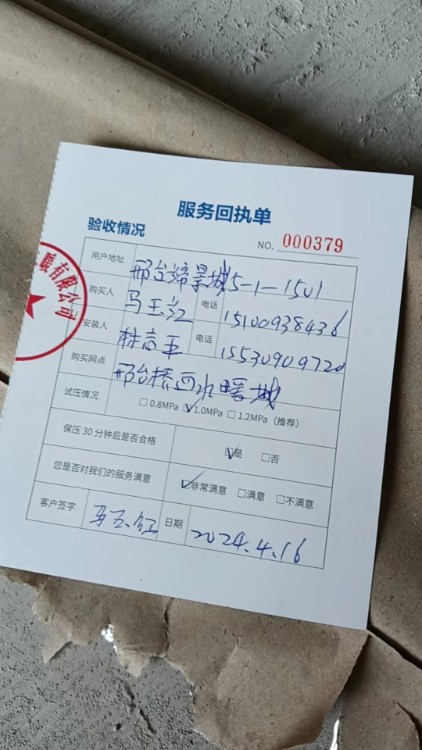 服务回执单
验收情况
NO. 000379
用户地址 邢台 景城 5-1-1501
购买人 马玉红 电话 15100938436
安装人 林志平 电话 15530909720
购买网点 邢台桥西水暖城
试压情况 □ 0.8MPa ☑ 1.0MPa □ 1.2MPa（推荐）
保压 30 分钟后是否合格 ☑是 □否
您是否对我们的服务满意 ☑非常满意 □满意 □不满意
客户签字 马玉红 日期 2024.4.16
有限公司